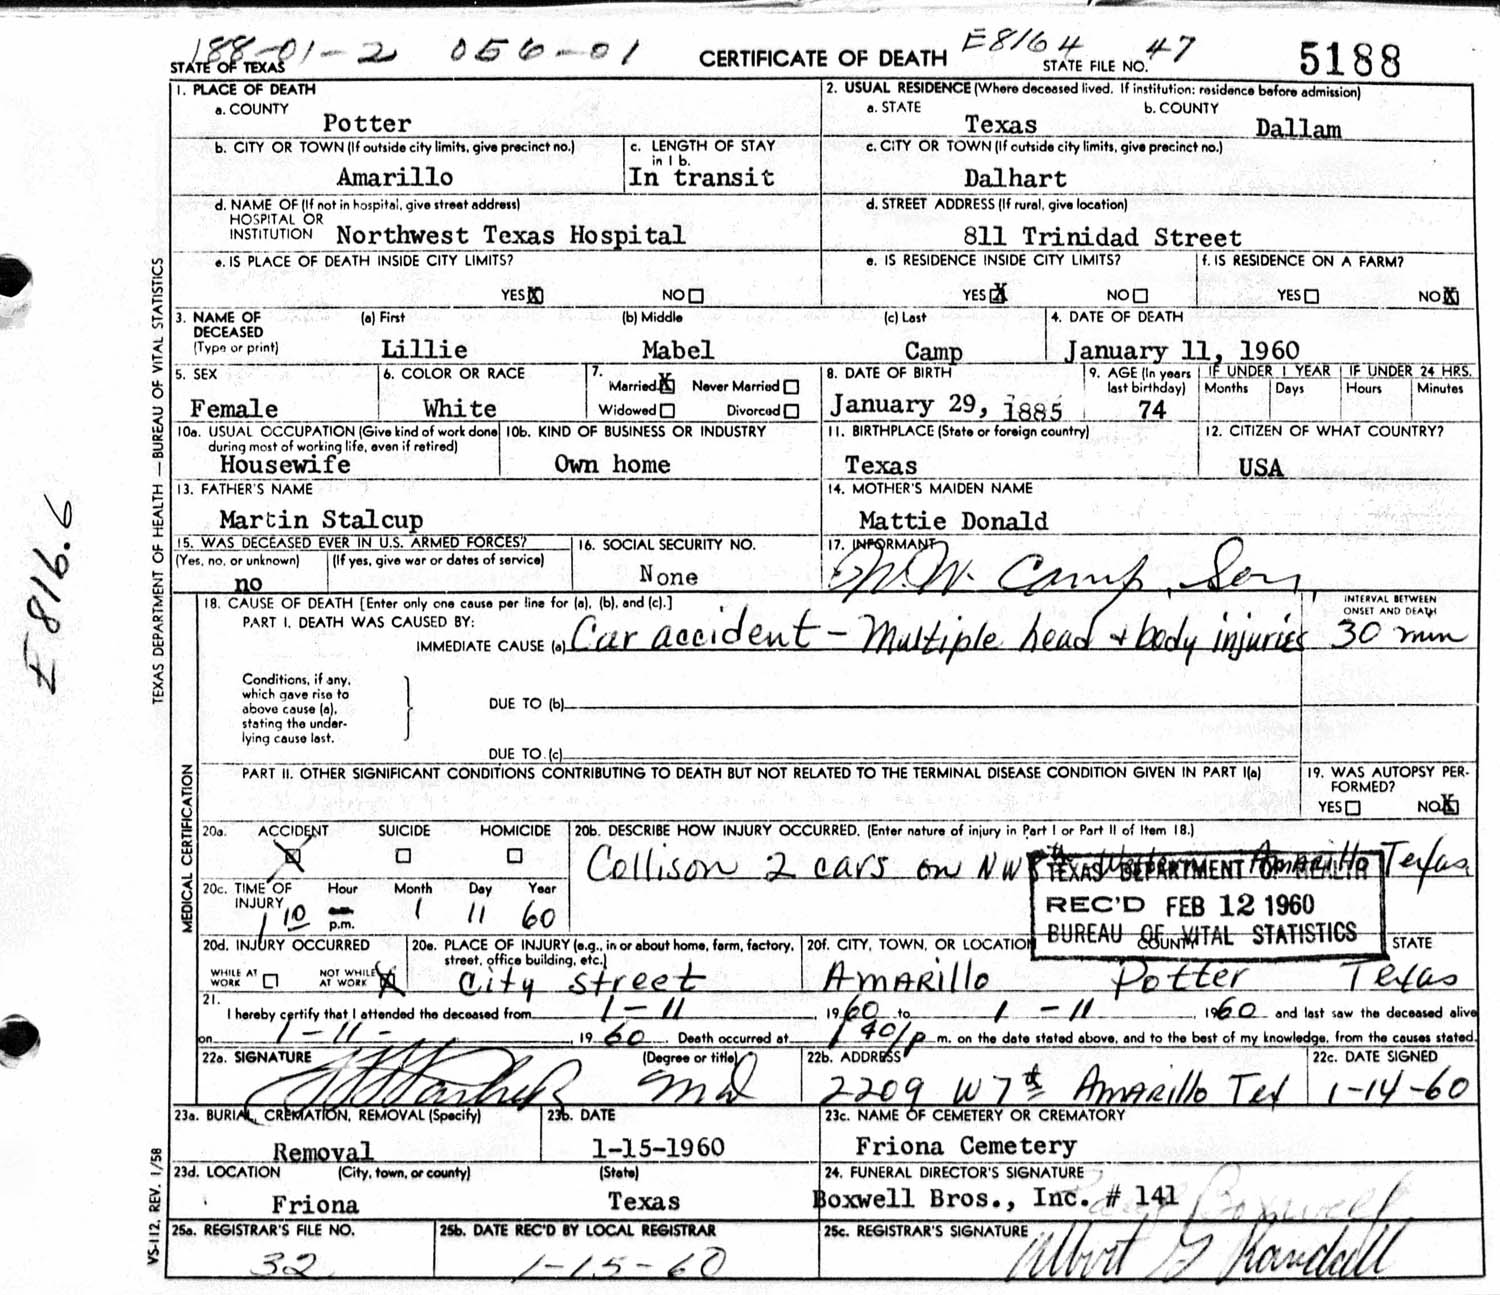 188-01-2 056-01 CERTIFICATE OF DEATH E8164 47 5188
STATE OF TEXAS STATE FILE NO.
1. PLACE OF DEATH
a. COUNTY
Potter
2. USUAL RESIDENCE (Where deceased lived. If institution: residence before admission)
a. STATE b. COUNTY
Texas Dallam
b. CITY OR TOWN (If outside city limits, give precinct no.)
Amarillo
c. LENGTH OF STAY in 1 b.
In transit
c. CITY OR TOWN (If outside city limits, give precinct no.)
Dalhart
d. NAME OF (If not in hospital, give street address)
HOSPITAL OR
INSTITUTION Northwest Texas Hospital
d. STREET ADDRESS (If rural, give location)
811 Trinidad Street
e. IS PLACE OF DEATH INSIDE CITY LIMITS?
YES X NO
e. IS RESIDENCE INSIDE CITY LIMITS?
YES X NO
f. IS RESIDENCE ON A FARM?
YES NO X
3. NAME OF DECEASED (Type or print)
(a) First (b) Middle (c) Last
Lillie Mabel Camp
4. DATE OF DEATH
January 11, 1960
5. SEX
Female
6. COLOR OR RACE
White
7.
Married X Never Married
Widowed Divorced
8. DATE OF BIRTH
January 29, 1885
9. AGE (In years last birthday)
74
IF UNDER 1 YEAR
Months Days
IF UNDER 24 HRS.
Hours Minutes
10a. USUAL OCCUPATION (Give kind of work done during most of working life, even if retired)
Housewife
10b. KIND OF BUSINESS OR INDUSTRY
Own home
11. BIRTHPLACE (State or foreign country)
Texas
12. CITIZEN OF WHAT COUNTRY?
USA
13. FATHER'S NAME
Martin Stalcup
14. MOTHER'S MAIDEN NAME
Mattie Donald
15. WAS DECEASED EVER IN U.S. ARMED FORCES?
(Yes, no, or unknown) (If yes, give war or dates of service)
no
16. SOCIAL SECURITY NO.
None
17. INFORMANT
W. Camp, Son
18. CAUSE OF DEATH [Enter only one cause per line for (a), (b), and (c).]
PART I. DEATH WAS CAUSED BY:
IMMEDIATE CAUSE (a) Car accident - Multiple head + body injuries
INTERVAL BETWEEN ONSET AND DEATH
30 min
Conditions, if any, which gave rise to above cause (a), stating the underlying cause last.
DUE TO (b)
DUE TO (c)
PART II. OTHER SIGNIFICANT CONDITIONS CONTRIBUTING TO DEATH BUT NOT RELATED TO THE TERMINAL DISEASE CONDITION GIVEN IN PART I(a)
19. WAS AUTOPSY PERFORMED?
YES NO X
20a. ACCIDENT SUICIDE HOMICIDE
X
20b. DESCRIBE HOW INJURY OCCURRED. (Enter nature of injury in Part I or Part II of Item 18.)
Collison 2 cars on NW Amarillo Texas
TEXAS DEPARTMENT OF HEALTH
REC'D FEB 12 1960
BUREAU OF VITAL STATISTICS
20c. TIME OF INJURY
Hour Month Day Year
1 10 p.m. 1 11 60
20d. INJURY OCCURRED
WHILE AT WORK NOT WHILE AT WORK X
20e. PLACE OF INJURY (e.g., in or about home, farm, factory, street, office building, etc.)
City street
20f. CITY, TOWN, OR LOCATION COUNTY STATE
Amarillo Potter Texas
21.
I hereby certify that I attended the deceased from 1-11, 1960 to 1-11 1960 and last saw the deceased alive
on 1-11-, 1960. Death occurred at 1 40/p m. on the date stated above, and to the best of my knowledge, from the causes stated.
22a. SIGNATURE (Degree or title)
MD
22b. ADDRESS
2209 W 7th Amarillo Tex
22c. DATE SIGNED
1-14-60
23a. BURIAL, CREMATION, REMOVAL (Specify)
Removal
23b. DATE
1-15-1960
23c. NAME OF CEMETERY OR CREMATORY
Friona Cemetery
23d. LOCATION (City, town, or county) (State)
Friona Texas
24. FUNERAL DIRECTOR'S SIGNATURE
Boxwell Bros., Inc. # 141
Boxwell
25a. REGISTRAR'S FILE NO.
32
25b. DATE REC'D BY LOCAL REGISTRAR
1-15-60
25c. REGISTRAR'S SIGNATURE
Albert G Randall
TEXAS DEPARTMENT OF HEALTH — BUREAU OF VITAL STATISTICS
MEDICAL CERTIFICATION
VS-112, REV. 1/58
E816.6